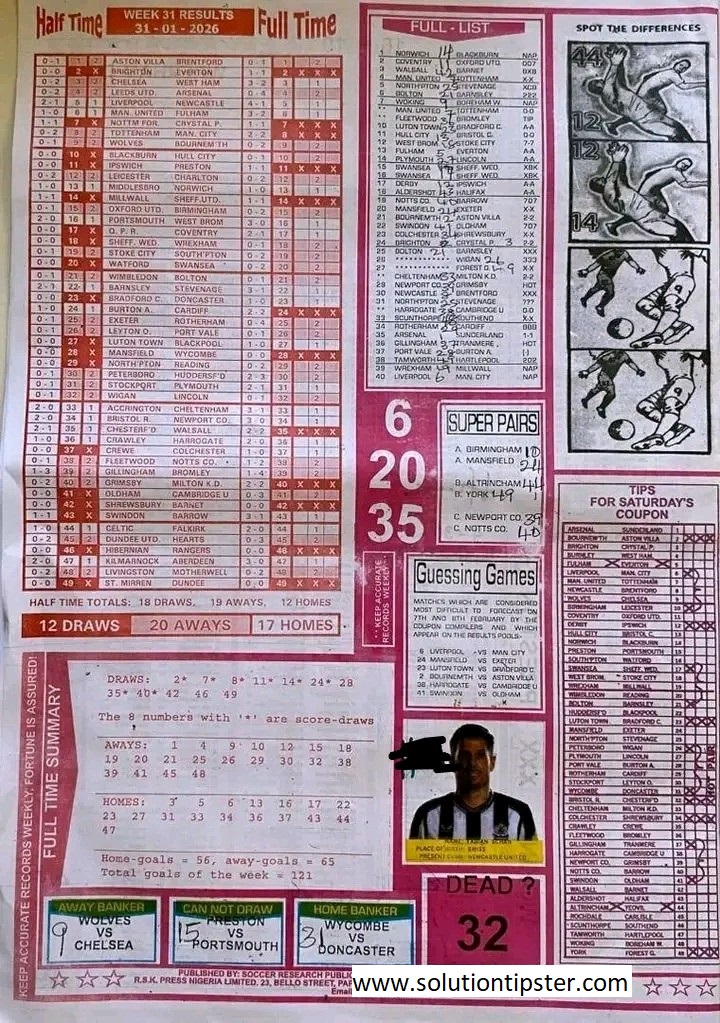 Half Time
WEEK 31 RESULTS
31 - 01 - 2026
Full Time
0-1 1 2 ASTON VILLA BRENTFORD 0-1 1 2
0-0 2 X BRIGHTON EVERTON 1-1 2 X X X
0-2 3 2 CHELSEA WEST HAM 3-2 3 1
0-2 4 2 LEEDS UTD. ARSENAL 0-4 4 2
2-1 5 1 LIVERPOOL NEWCASTLE 4-1 5 1
MAN. UNITED FULHAM 3-2 6 1
1-1 7 X NOTTM FOR. CRYSTAL P. 1-1 7 X X X
0-2 8 2 TOTTENHAM MAN. CITY 2-2 8 X X X
0-1 9 2 WOLVES BOURNEM'TH 0-2 9 2
0-0 10 X BLACKBURN HULL CITY 0-1 10 2
0-0 11 X IPSWICH PRESTON 1-1 11 X X X
0-2 12 2 LEICESTER CHARLTON 0-2 12 2
1-0 13 1 MIDDLESBRO NORWICH 1-0 13 1
1-1 14 X MILLWALL SHEFF.UTD. 1-1 14 X X X
0-1 15 2 OXFORD UTD. BIRMINGHAM 0-2 15 2
2-0 16 1 PORTSMOUTH WEST BROM 3-0 16 1
0-0 17 X Q. P. R. COVENTRY 2-1 17 1
0-0 18 X SHEFF. WED. WREXHAM 0-1 18 2
0-1 19 2 STOKE CITY SOUTH'PTON 0-2 19 2
0-0 20 X WATFORD SWANSEA 0-2 20 2
0-1 21 2 WIMBLEDON BOLTON 0-1 21 2
2-1 22 1 BARNSLEY STEVENAGE 3-1 22 1
0-0 23 X BRADFORD C. DONCASTER 1-0 23 1
1-0 24 1 BURTON A. CARDIFF 2-2 24 X X X
0-1 25 2 EXETER ROTHERHAM 0-4 25 2
0-1 26 2 LEYTON O. PORT VALE 0-1 26 2
0-0 27 X LUTON TOWN BLACKPOOL 1-0 27 1
0-0 28 X MANSFIELD WYCOMBE 0-0 28 X X X
0-0 29 X NORTH'PTON READING 0-2 29 2
0-1 30 2 PETERBORO HUDDERSF'D 2-3 30 2
0-1 31 2 STOCKPORT PLYMOUTH 2-1 31 1
0-0 32 WIGAN LINCOLN 0-1 32 2
2-0 33 1 ACCRINGTON CHELTENHAM 3-1 33 1
2-0 34 1 BRISTOL R. NEWPORT CO. 3-0 34 1
2-1 35 1 CHESTERF'D WALSALL 2-2 35 X X X
1-0 36 1 CRAWLEY HARROGATE 2-0 36 1
0-0 37 X CREWE COLCHESTER 1-0 37 1
0-1 38 2 FLEETWOOD NOTTS CO. 1-2 38 2
1-3 39 2 GILLINGHAM BROMLEY 1-4 39 2
0-2 40 GRIMSBY MILTON K.D. 2-2 40 X X X
0-0 41 X OLDHAM CAMBRIDGE U 0-3 41 2
0-0 42 X SHREWSBURY BARNET 0-0 42 X X X
1-1 43 X SWINDON BARROW 3-1 43 1
1-0 44 1 CELTIC FALKIRK 2-0 44 1
0-2 45 2 DUNDEE UTD. HEARTS 0-3 45 2
0-0 46 X HIBERNIAN RANGERS 0-0 46 X X X
2-0 47 1 KILMARNOCK ABERDEEN 3-0 47 1
0-2 48 2 LIVINGSTON MOTHERWELL 0-2 48 2
0-0 49 X ST. MIRREN DUNDEE 0-0 49 X X X
HALF TIME TOTALS: 18 DRAWS, 19 AWAYS, 12 HOMES
12 DRAWS 20 AWAYS 17 HOMES
FULL - LIST
1 NORWICH 14 BLACKBURN NAP
2 COVENTRY 11 OXFORD UTD. 007
3 WALSALL BARNET 0X0
4 MAN. UNITED TOTTENHAM X.X
5 NORTH'PTON 25 STEVENAGE XCB
6 BOLTON 21 BARNSLEY 222
7 WOKING BOREHAM W. NAP
** MAN. UNITED TOTTENHAM 0-0
FLEETWOOD BROMLEY TIP
10 LUTON TOWN BRADFORD C. A-A
11 HULL CITY BRISTOL C. 0-0
12 WEST BROM STOKE CITY 7-7
13 FULHAM 5 EVERTON A-A
14 PLYMOUTH 27 LINCOLN A-A
15 SWANSEA SHEFF. WED. XBK
16 SWANSEA SHEFF. WED. XBK
17 DERBY 12 IPSWICH A-A
18 ALDERSHOT 43 HALIFAX A-A
19 NOTTS CO. 40 BARROW 707
20 MANSFIELD EXETER X-X
21 BOURNEM'TH 2 ASTON VILLA 2-2
22 SWINDON 41 OLDHAM 707
23 COLCHESTER 34 SHREWSBURY X-X
24 BRIGHTON CRYSTAL P. 3 2-2
25 BOLTON 21 BARNSLEY XXX
26 ********** WIGAN 26 333
** ********** FOREST G. 49 XXX
CHELTENHAM MILTON K.D. 2-2
28 NEWPORT CO. GRIMSBY HOT
30 NEWCASTLE BRENTFORD XXX
31 NORTH'PTON 25 STEVENAGE ???
** HARROGATE CAMBRIDGE U 0-0
33 SCUNTHORPE SOUTHEND X.X
34 ROTHERHAM CARDIFF BBB
35 ARSENAL 1 SUNDERLAND 1-1
36 GILLINGHAM 37 TRANMERE HOT
37 PORT VALE BURTON A. [-]
38 TAMWORTH HARTLEPOOL 202
39 WREXHAM MILLWALL NAP
40 LIVERPOOL 6 MAN. CITY NAP
SPOT THE DIFFERENCES
44
12
12
14
6
20
35
SUPER PAIRS
A. BIRMINGHAM 10
A. MANSFIELD 24
B. ALTRINCHAM 44
B. YORK 49
C. NEWPORT CO. 39
C. NOTTS CO. 40
** KEEP ACCURATE RECORDS WEEKLY.
Guessing Games
MATCHES WHICH ARE CONSIDERED
MOST DIFFICULT TO FORECAST ON
7TH AND 8TH FEBRUARY BY THE
COUPON COMPILERS AND WHICH
APPEAR ON THE RESULTS POOLS:-
6 LIVERPOOL - VS MAN CITY
24 MANSFIELD - VS EXETER
23 LUTON TOWN - VS BRADFORD C
2 BOURNEMTH - VS ASTON VILLA
38 HARROGATE - VS CAMBRIDGE U
41 SWINDON - VS OLDHAM
TIPS
FOR SATURDAY'S
COUPON
ARSENAL SUNDERLAND 1
BOURNEM'TH ASTON VILLA 2
BRIGHTON CRYSTAL P. 3
BURNLEY WEST HAM 4
FULHAM EVERTON 5
LIVERPOOL MAN. CITY 6
MAN. UNITED TOTTENHAM 7
NEWCASTLE BRENTFORD 8
WOLVES CHELSEA 9
BIRMINGHAM LEICESTER 10
COVENTRY OXFORD UTD. 11
DERBY IPSWICH 12
HULL CITY BRISTOL C. 13
NORWICH BLACKBURN 14
PRESTON PORTSMOUTH 15
SOUTH'PTON WATFORD 16
SWANSEA SHEFF. WED. 17
WEST BROM. STOKE CITY 18
WREXHAM MILLWALL 19
WIMBLEDON READING 20
BOLTON BARNSLEY 21
HUDDERSF'D BLACKPOOL 22
LUTON TOWN BRADFORD C. 23
MANSFIELD EXETER 24
NORTH'PTON STEVENAGE 25
PETERBORO WIGAN 26
PLYMOUTH LINCOLN 27
PORT VALE BURTON A. 28
ROTHERHAM CARDIFF 29
STOCKPORT LEYTON O. 30
WYCOMBE DONCASTER 31
BRISTOL R. CHESTERF'D 32
CHELTENHAM MILTON K.D. 33
COLCHESTER SHREWSBURY 34
CRAWLEY CREWE 35
FLEETWOOD BROMLEY 36
GILLINGHAM TRANMERE 37
HARROGATE CAMBRIDGE U 38
NEWPORT CO. GRIMSBY 39
NOTTS CO. BARROW 40
SWINDON OLDHAM 41
WALSALL BARNET 42
ALDERSHOT HALIFAX 43
ALTRINCHAM YEOVIL 44
ROCHDALE CARLISLE 45
SCUNTHORPE SOUTHEND 46
TAMWORTH HARTLEPOOL 47
WOKING BOREHAM W. 48
YORK FOREST G. 49
HOT PAIR
KEEP ACCURATE RECORDS WEEKLY, FORTUNE IS ASSURED!
FULL TIME SUMMARY
DRAWS: 2* 7* 8* 11* 14* 24* 28
35* 40* 42 46 49
The 8 numbers with '*' are score-draws
AWAYS: 1 4 9 10 12 15 18
19 20 21 25 26 29 30 32 38
39 41 45 48
HOMES: 3 5 6 13 16 17 22
23 27 31 33 34 36 37 43 44
47
Home-goals = 56, away-goals = 65
Total goals of the week = 121
NAME: FABIAN SCHAR
PLACE OF BIRTH: SWISS
PRESENT CLUB: NEWCASTLE UNITED
DEAD ?
32
AWAY BANKER
9 WOLVES
VS
CHELSEA
CAN NOT DRAW
15 PRESTON
VS
PORTSMOUTH
HOME BANKER
31 WYCOMBE
VS
DONCASTER
PUBLISHED BY: SOCCER RESEARCH PUBLIC
R.S.K. PRESS NIGERIA LIMITED. 23, BELLO STREET, PA
Email
www.solutiontipster.com